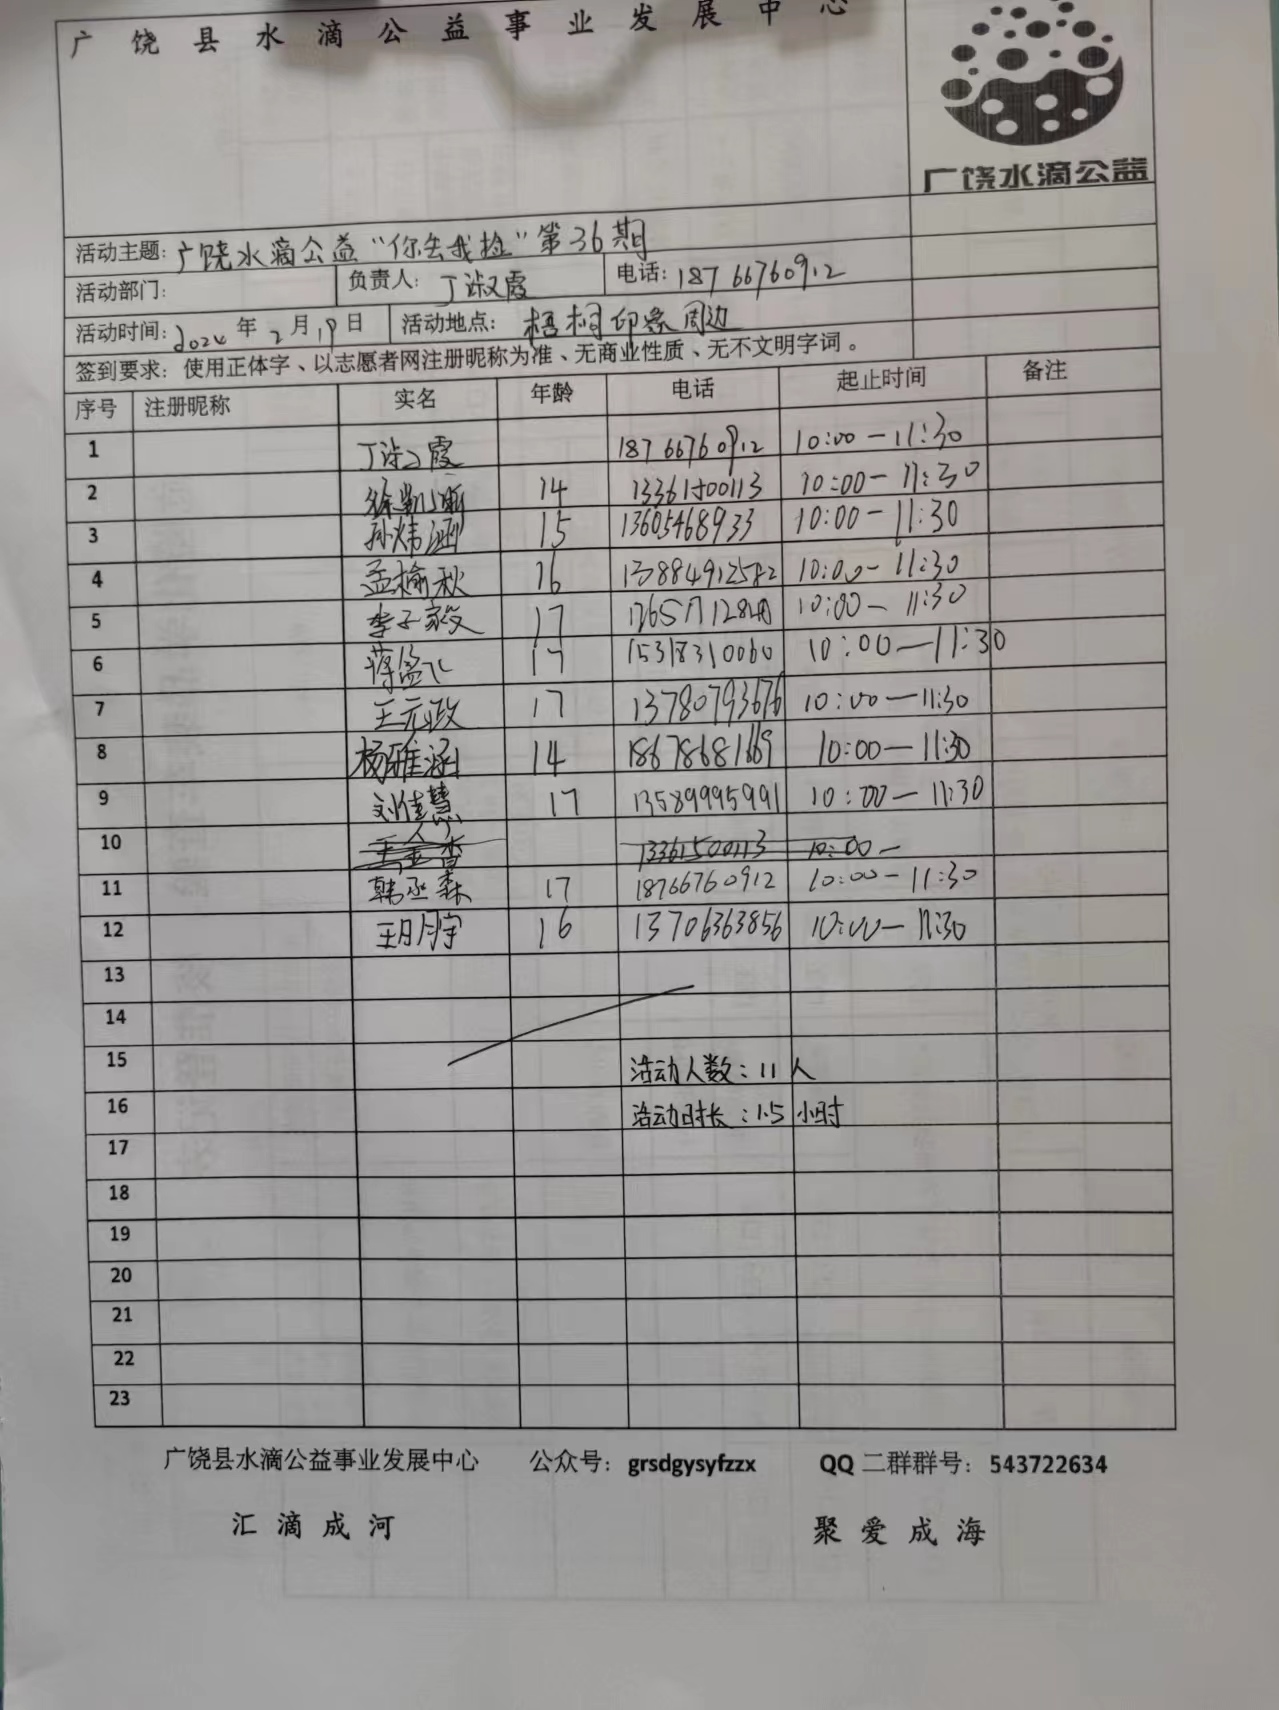 广饶县水滴公益事业发展中心
广饶水滴公益
活动主题: 广饶水滴公益“你丢我捡”第36期
活动部门: 负责人: 丁淑霞 电话: 18766760912
活动时间: 2024年2月19日 活动地点: 梧桐印象周边
签到要求: 使用正体字、以志愿者网注册昵称为准、无商业性质、无不文明字词。
序号 注册昵称 实名 年龄 电话 起止时间 备注
1 丁淑霞 18766760912 10:00-11:30
2 徐凯晰 14 13361500113 10:00-11:30
3 孙炜涵 15 13605468933 10:00-11:30
4 孟榆秋 16 13884912582 10:00-11:30
5 李子毅 17 10:00-11:30
6 蒋盈 17 15318310060 10:00-11:30
7 王元政 17 13780793676 10:00-11:30
8 杨雅涵 14 18678681669 10:00-11:30
9 刘佳慧 17 13589995991 10:00-11:30
10 13361500113 10:00-
11 韩丞森 17 18766760912 10:00-11:30
12 王月宇 16 13706363856 10:00-11:30
13
14
15 活动人数:11人
16 活动时长:1.5小时
17
18
19
20
21
22
23
广饶县水滴公益事业发展中心 公众号: grsdgysyfzzx QQ二群群号: 543722634
汇滴成河 聚爱成海